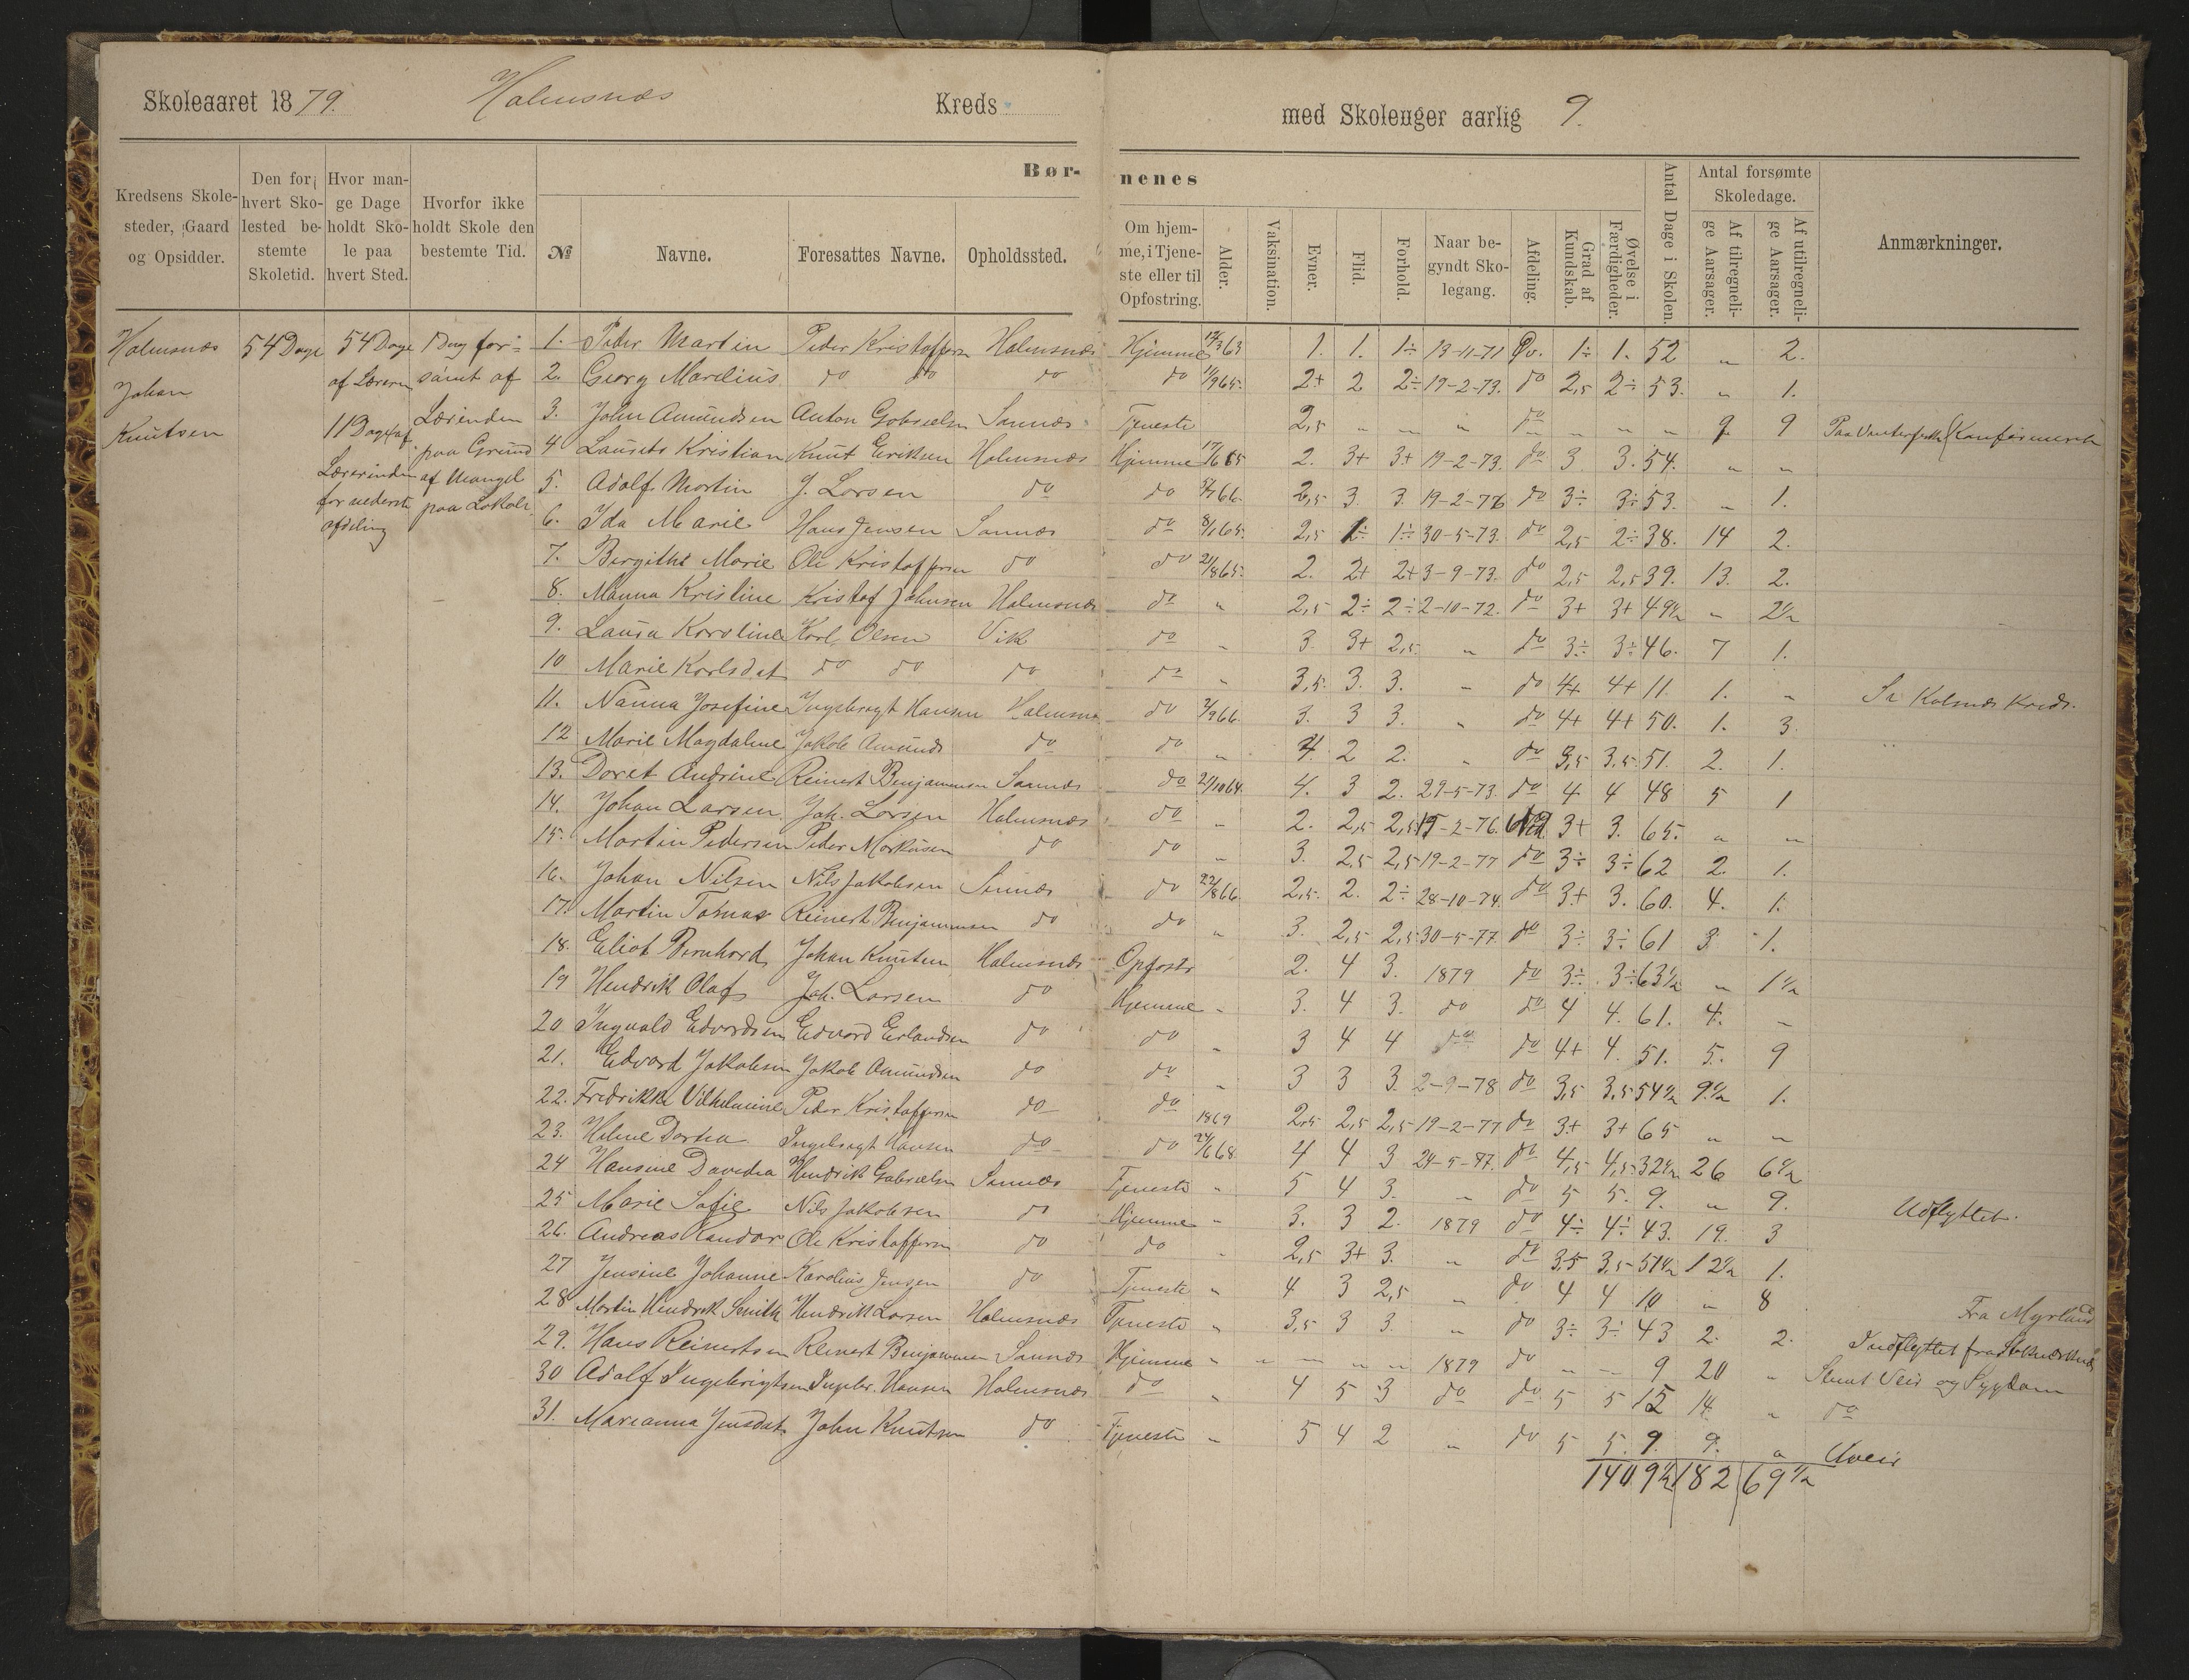 Skoleaaret 1879. Holmsnæs Kreds
med Skoleuger aarlig 9.
Kredsens Skolesteder, Gaard og Opsidder.
Den for hvert Skolested bestemte Skoletid.
Hvor mange Dage holdt Skole paa hvert Sted.
Hvorfor ikke holdt Skole den bestemte Tid.
Børnenes
№ Navne. Foresattes Navne. Opholdssted.
Om hjemme, i Tjeneste eller til Opfostring.
Alder. Vaksination. Evner. Flid. Forhold.
Naar begyndt Skolegang.
Afdeling. Grad af Kundskab. Øvelse i Færdigheder.
Antal Dage i Skolen.
Antal forsømte Skoledage.
Af tilregnelige Aarsager. Af utilregnelige Aarsager.
Anmærkninger.
Holmsnæs Johan Knutsen
54 Dage
54 Dage af Læreren 11 Dage af Lærerinden for nederste afdeling
1 Dag forsømt af Lærinden paa Grund af Mangel paa Lokale
1. Peder Martin Peder Kristoffersen Holmsnæs Hjemme 12/3 63 1. 1. 1÷ 13-11-71 Øv. 1÷ 1. 52 „ 2.
2. Georg Marelius do do do do 11/9 65. 2+ 2 2÷ 19-2-73. do 2,5 2÷ 53. „ 1.
3. John Amundsen Anton Gabrielsen Sannæs Tjeneste 2,5 „ „ „ do „ „ „ 9 9 Paa Vinterfiske (Konfirmeret
4 Lausits Kristian Knut Eriksen Holmsnæs Hjemme 17/6 65 2. 3+ 3+ 19-2-73. do 3 3. 54. „ „
5. Adolf Martin J. Larsen do do 5/7 66. 2,5 3 3. 19-2-76 do 3÷ 3÷ 53. „ 1.
6. Ida Marie Hans Jensen Sannæs do 8/1 65. 2,5 1÷ 1÷ 30-5-73. do 2,5 2÷ 38. 14 2.
7. Bergithe Marie Ole Kristoffersen do do 21/8 65. 2. 2+ 2+ 3-9-73. do 2,5 2,5 39. 13. 2.
8. Manna Kristine Kristof Johnsen Holmsnæs do „ 2,5 2÷ 2÷ 2-10-72. do 3+ 3+ 49½ „ 2½
9. Laura Karoline Karl Olsen Vik do „ 3. 3+ 2,5. „ do 3÷ 3÷ 46. 7 1.
10 Marie Karlsdat do do do do „ 3,5. 3. 3. „ do 4+ 4+ 11. 1. „ Kreds.
11. Nanna Josefine Ingebrigt Hansen Holmsnæs do 7/9 66. 3. 3 3. „ do 4+ 4+ 50. 1. 3.
12 Marie Magdalene Jakob Amunds do do „ 4. 2 2. „ do 3,5 3,5. 51. 2. 1.
13. Doret Andrine Reinert Benjaminsen Sannæs do 21/10 64. 4. 3 2. 29-5-73. do 4 4 48 5 1
14. Johan Larsen Joh. Larsen Holmsnæs do „ 2. 2,5 2,5 15-2-76. Ned 3+ 3. 65. „ „
15. Martin Pedersen Peder Markusen do do „ 3. 2,5 2,5 19-2-77 do 3÷ 3÷ 62 2. 1.
16. Johan Nilsen Nils Jakobsen Sannæs do 22/8 66. 2,5. 2. 2÷ 28-10-74. do 3+ 3. 60. 4. 1.
17. Martin Tomas Reinert Benjaminsen do do „ 3. 2,5 2,5 30-5-77 do 3÷ 3÷ 61 3 1.
18. Eliot Bernhard Johan Knutsen Holmsnæs Opfostr 2. 4 3. 1879 do 3÷ 3÷ 63½ „ 1½
19 Hendrik Olaf Joh. Larsen do Hjemme „ 3. 4 3. do do 4 4. 61. 4. „
20 Ingvald Edvardsen Edvard Erlandsen do do „ 3 4 4 do do 4+ 4. 51. 5. 9
21. Edvard Jakobsen Jakob Amundsen do do „ 3 3 3. 2-9-78 do 3,5 3,5 54½ 9½ 1.
22. Fredrikke Vilhelmine Peder Kristoffersen do do 1869 2,5 2,5 2,5 19-2-77 do 3+ 3+ 65 „ „
23. Helene Dortea Ingebrigt Hansen do do 24/6 68 4 4 3 24-5-77. do 4,5 4,5 32½ 26 6½
24 Hansine Davida Hendrik Gabrielsen Sannæs Tjeneste „ 5 4 3. „ do 5 5. 9. „ 9. Udflyttet.
25 Marie Sofie Nils Jakobsen do Hjemme „ 3. 3 2. 1879 do 4÷ 4÷ 43. 19. 3
26. Andreas Randor Ole Kristoffersen do do „ 2,5 3+ 3. „ do 3,5 3,5 51½ 12½ 1.
27 Jensine Johanne Karolius Jensen do Tjeneste „ 4 3 2,5 „ do 4 4 10 „ 8 Fra Myrland
28 Martin Hendrik Smith Hendrik Larsen Holmsnæs Tjeneste „ 3,5 3 3 „ do 3÷ 3÷ 43 2. 2. Indflyttet fra
29. Hans Reinertsen Reinert Benjaminsen Sannæs Hjemme „ „ „ „ 1879 do „ „ 9 20 „ Slemt Veir og Sygdom
30 Adolf Ingebrigtsen Ingebr. Hansen Holmsnæs do „ 4 5 3 do do 5 5 15 14 „ do
31. Marianna Jensdat John Knutsen do Tjeneste „ 5 4 2 „ do 5 5. 9. 9. „ Uveir
1409½ 182 69½